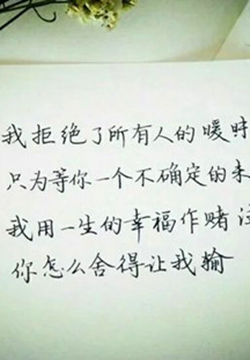 我拒绝了所有人的暖时
只为等你一个不确定的未
我用一生的幸福作赌注
你怎么舍得让我输